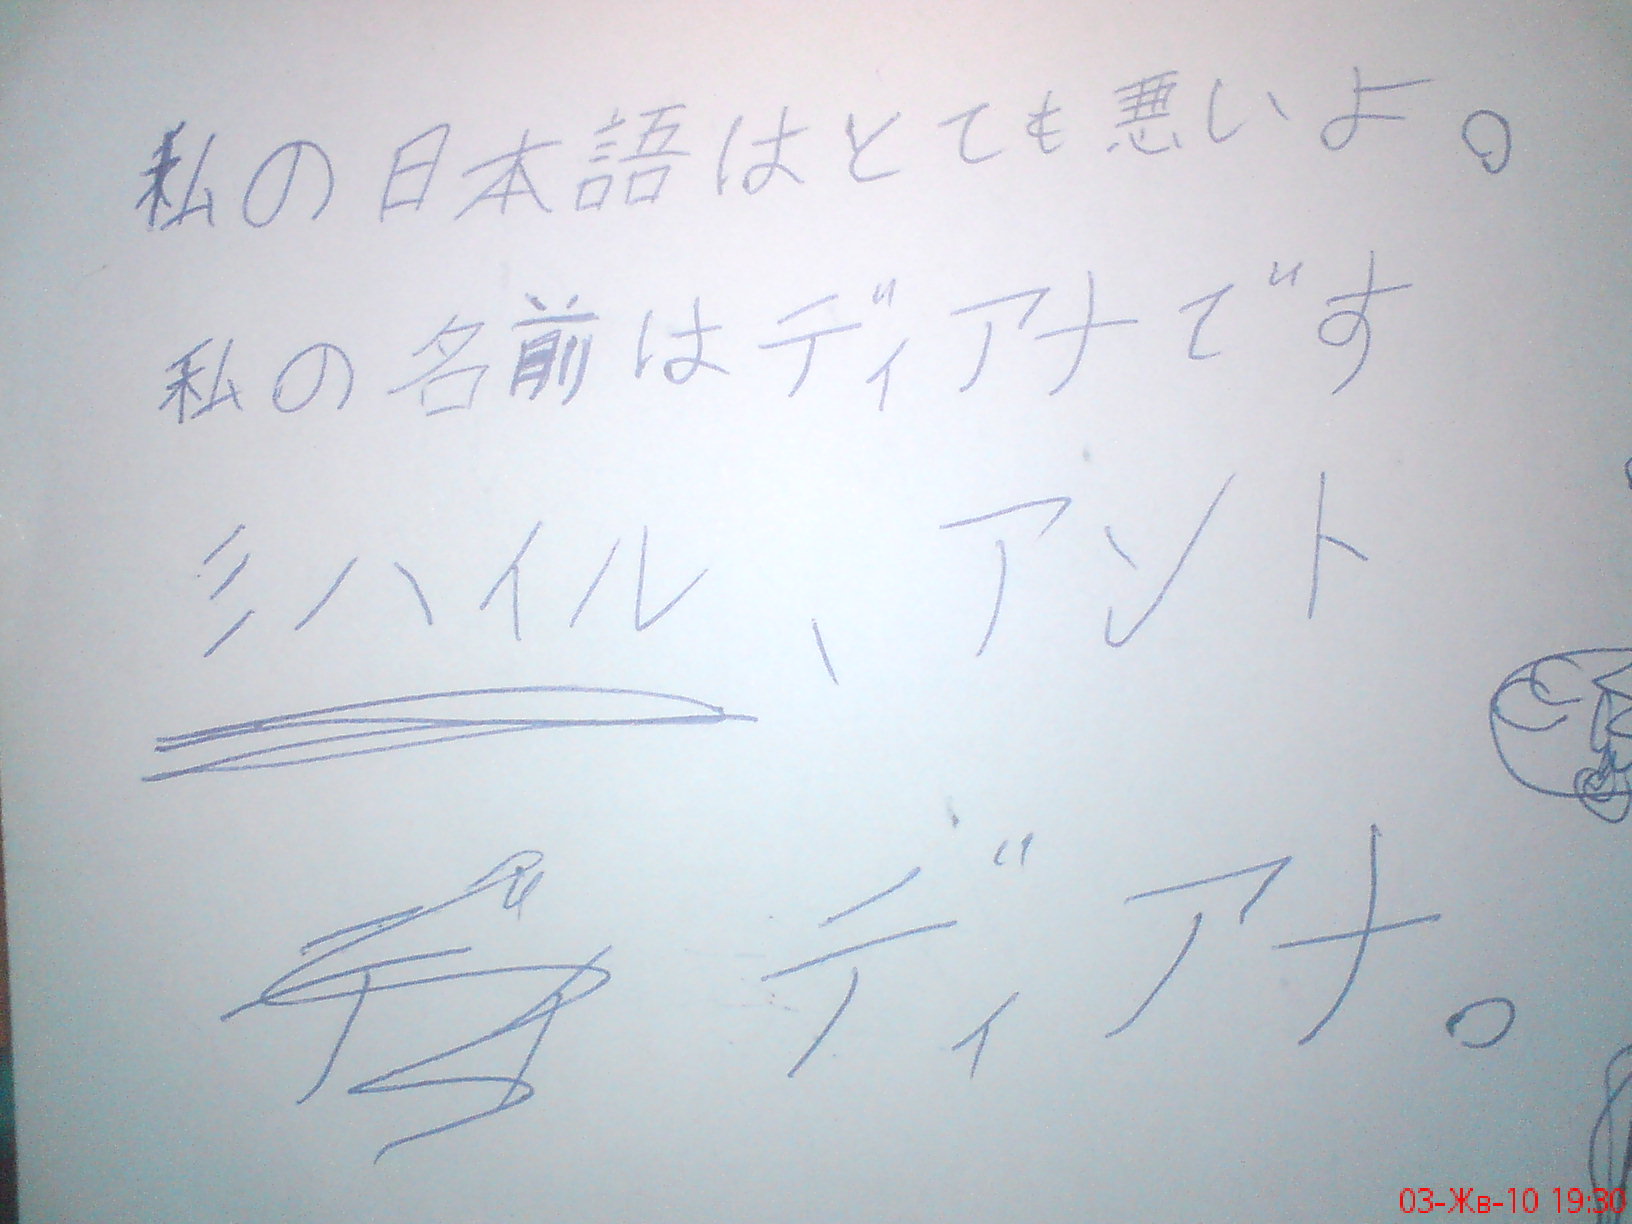 私の日本語はとても悪いよ。
私の名前はディアナです
ミハイル、アント
ディアナ。
03-Жв-10 19:30